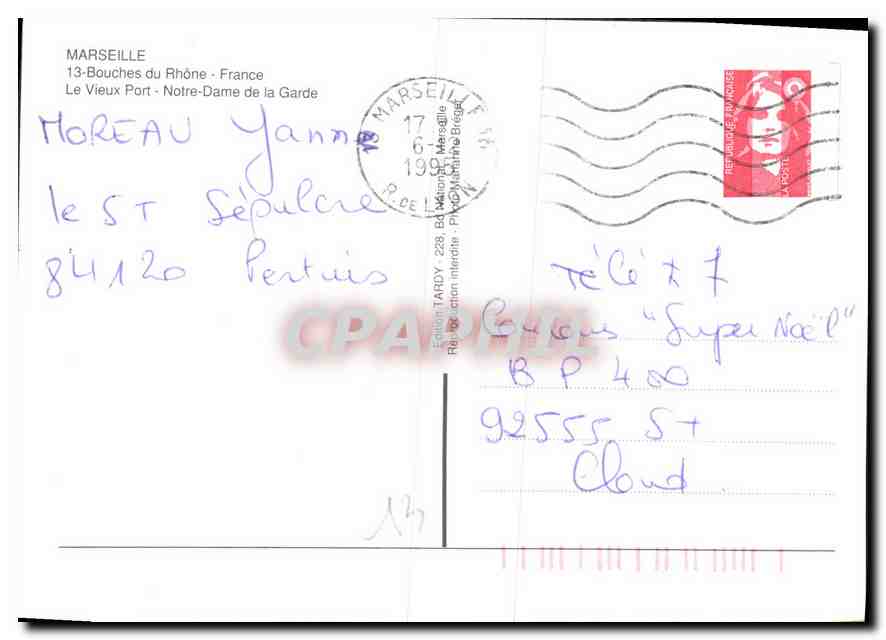 MARSEILLE
13-Bouches du Rhône - France
Le Vieux Port - Notre-Dame de la Garde
MOREAU Yann
le ST Sépulcre
84120 Pertuis
13 MARSEILLE
17 H
6-12
199
R. DE LYON
Edition TARDY - 228, Bd National - Marseille
Reproduction interdite - Photo Marianne Bréger
REPUBLIQUE FRANÇAISE
LA POSTE
TéLé * 7
Concours "Super Noël"
BP 400
92555 ST
Cloud
CPAPHIL